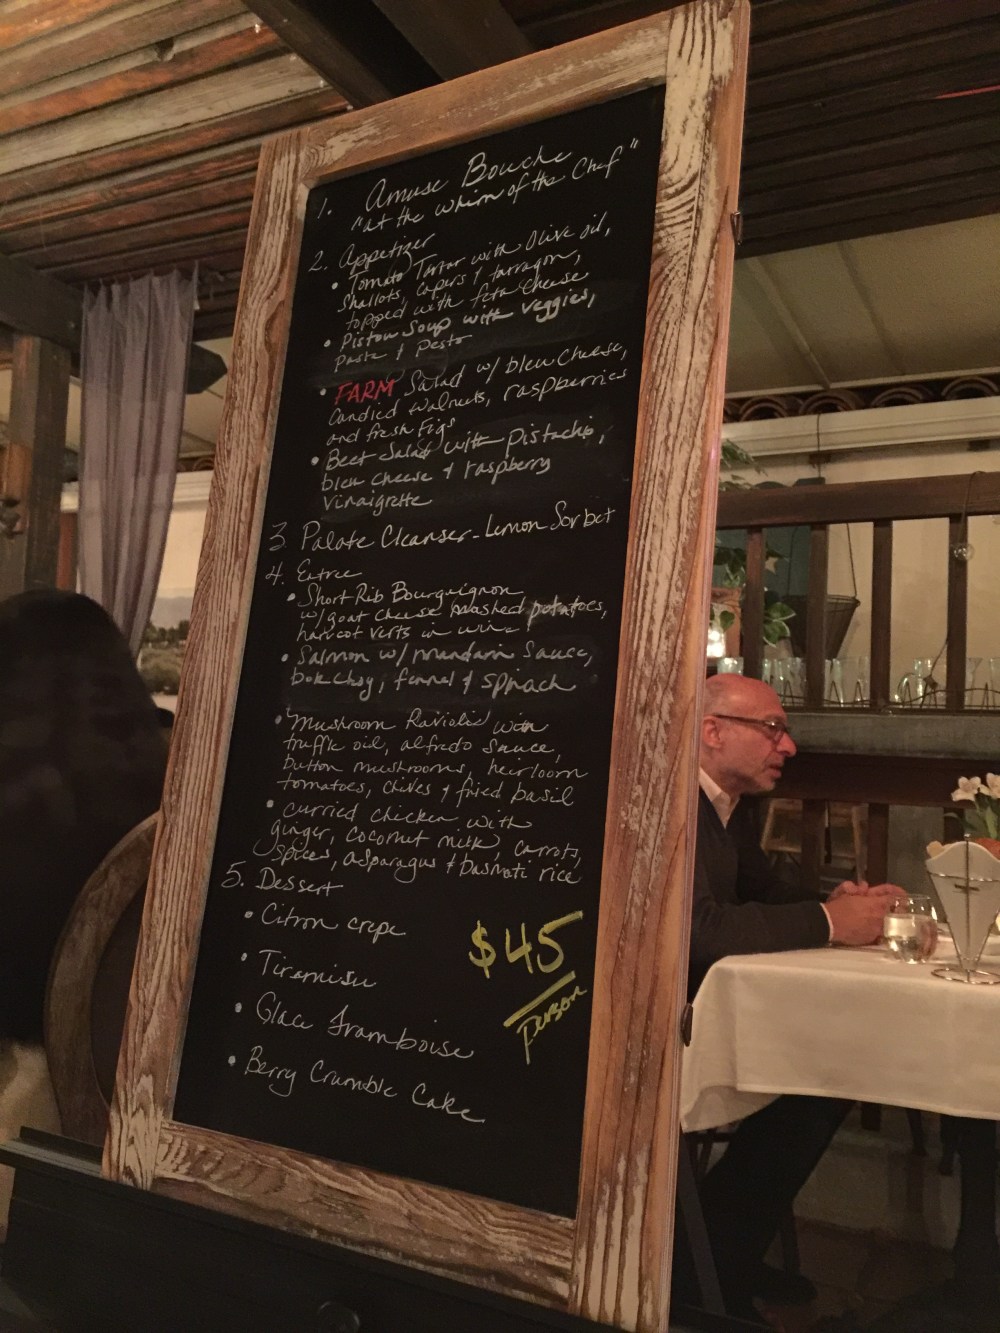 1. Amuse Bouche
"at the whim of the Chef"
2. Appetizer
• Tomato Tartar with Olive oil,
Shallots, Capers & tarragon,
topped with feta cheese
• Pistou Soup with veggies,
pasta & Pesto
• FARM Salad w/ bleu cheese,
Candied walnuts, raspberries
and fresh Figs
• Beet Salad with pistachio,
bleu cheese & raspberry
vinaigrette
3 Palate Cleanser - Lemon Sorbet
4. Entree
• Short Rib Bourguignon
w/ goat cheese mashed potatoes,
haricot verts in wine
• Salmon w/ mandarin Sauce,
bok choy, fennel & spinach
• Mushroom Raviolid with
truffle oil, alfredo sauce,
button mushrooms, heirloom
tomatoes, chives & fried basil
• curried chicken with
ginger, coconut milk, carrots,
spices, asparagus & basmati rice
5. Dessert
• Citron crepe
• Tiramisu
• Glace framboise
• Berry Crumble Cake
$45
person